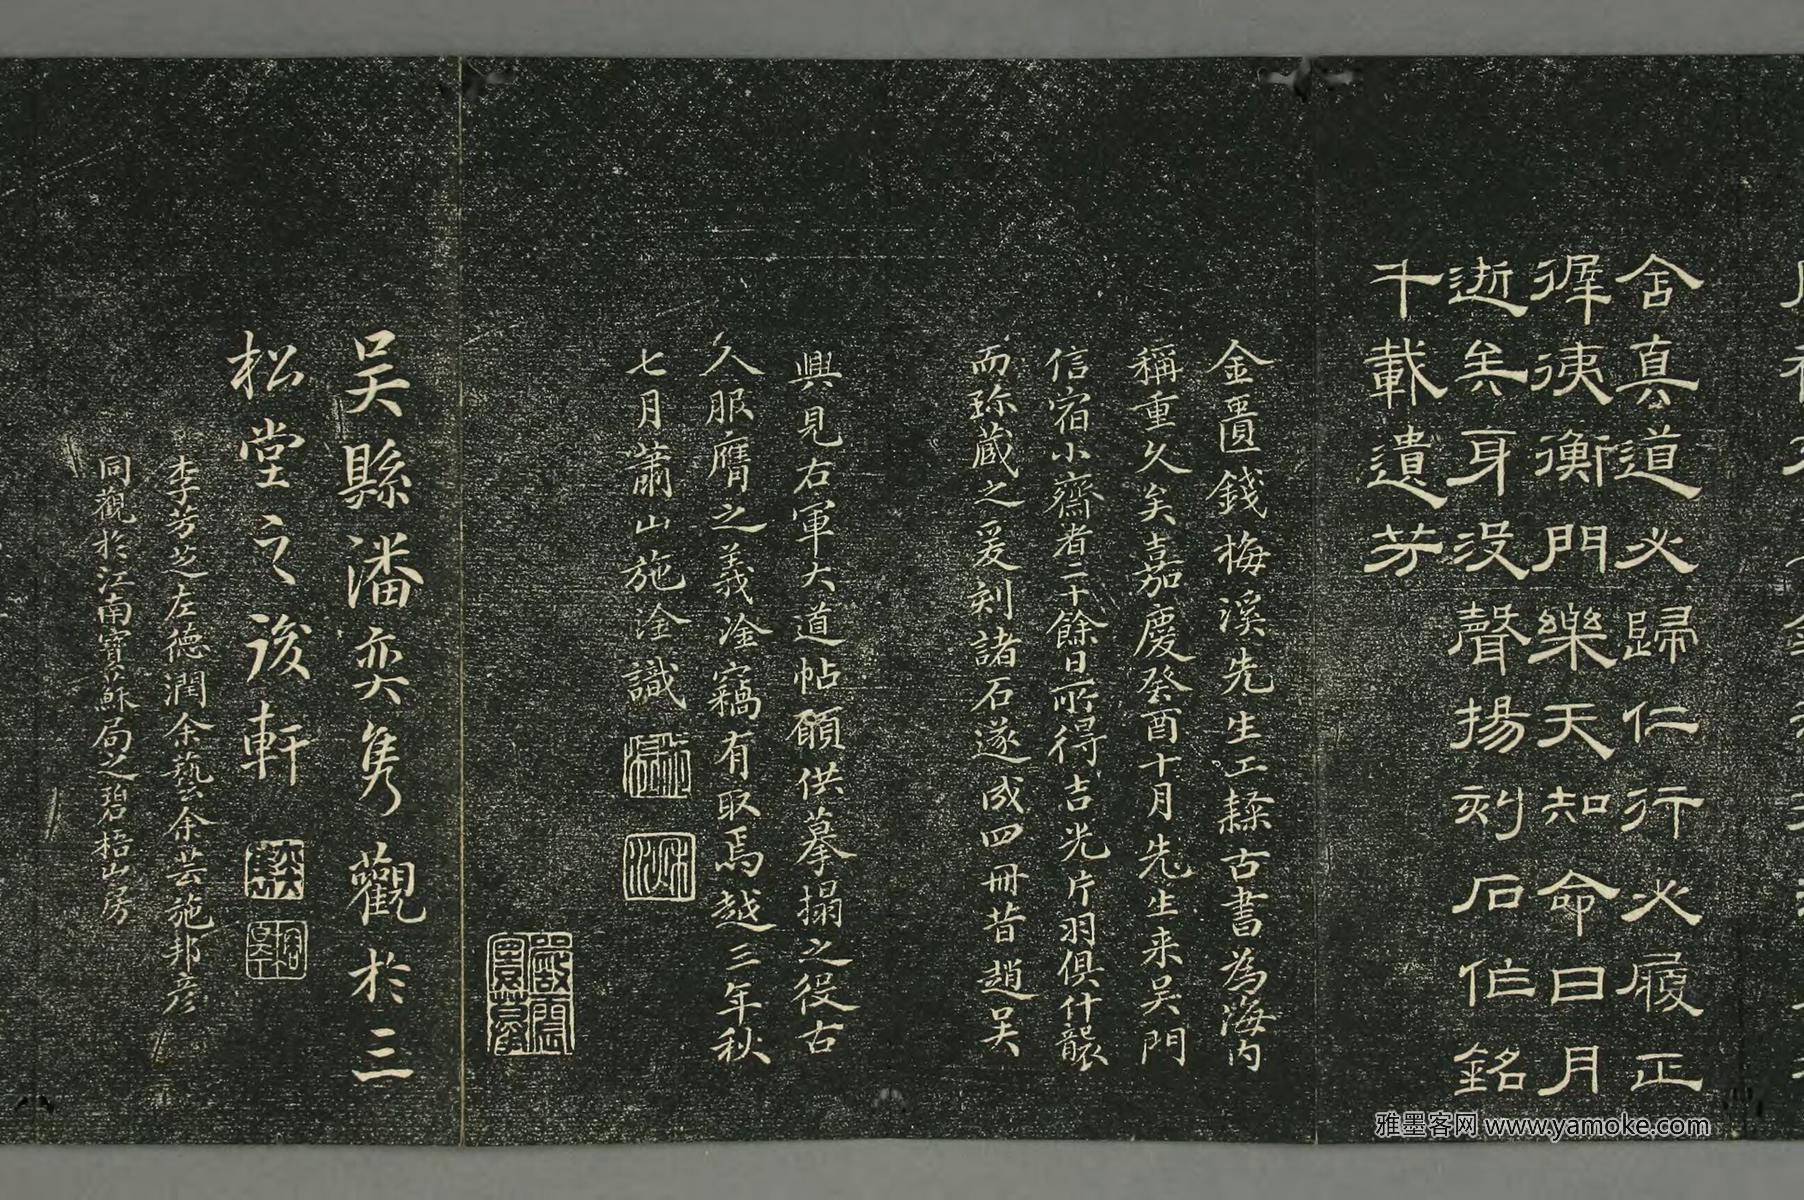 舍真道必歸仁行必履正
徲㣪衡門樂天知命日月
逝矣身没聲揚刻石作銘
千載遺芳
金匱錢梅溪先生工隸古書為海内
稱重久矣嘉慶癸酉十月先生来吴門
信宿小齋者二十餘日所得吉光片羽俱什襲
而珎蔵之爰刻諸石遂成四冊昔趙吴
興見右軍大道帖願供摹搨之役古
人服膺之義淦竊有取焉越三年秋
七月蕭山施淦識
吴縣潘奕雋觀於三
松堂之後軒
李芳芝左德潤余藝余芸施邦彦
同觀於江南寶蘇局之碧梧山房
雅墨客网 www.yamoke.com